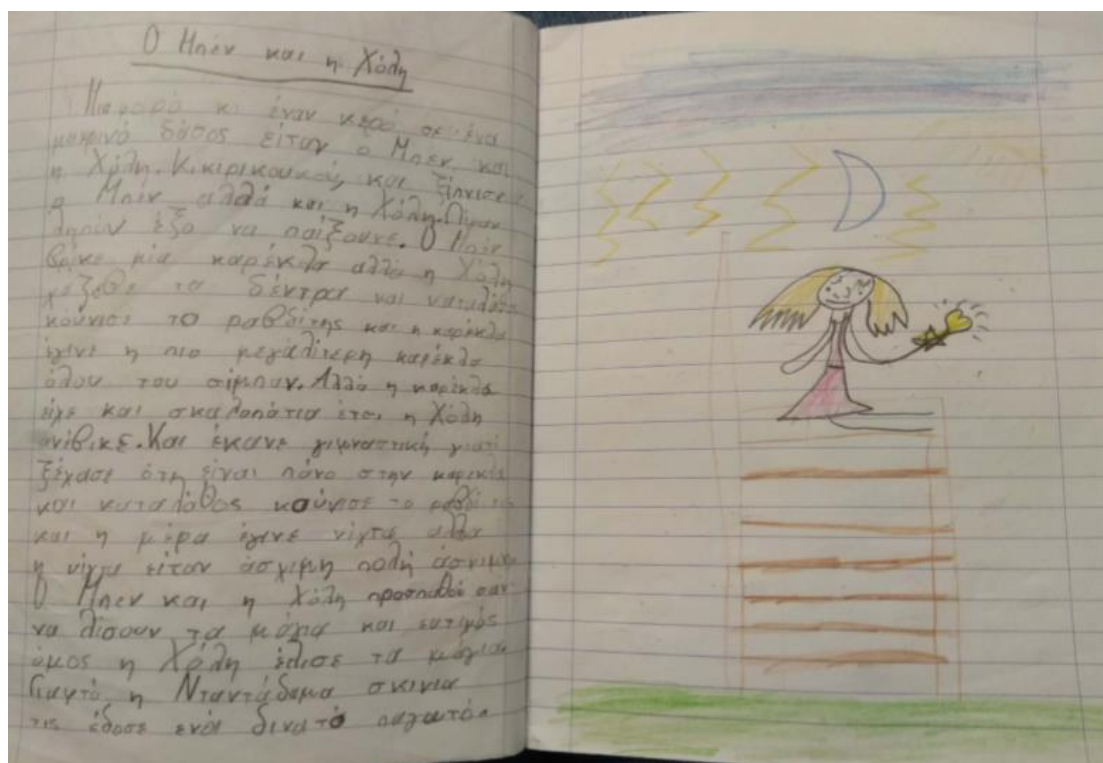 Ο Μπέν και η Χόλη
Μια φορά κι έναν κερό σε ένα
μακρινό δάσος είταν ο Μπέν και
η Χόλη. Κικιρικουκού, και ξίπνισε
ο Μπέν αλλά και η Χόλη. Πίγαν
λιπόν έξο να παίξουνε. Ο Μπέν
βρίκε μία καρέκλα αλλά η Χόλη
τα δέντρα και
κούνισε το ραβδίτης και η καρέκλα
έγινε η πιο μεγαλίτερη καρέκλα
όλου του σίμπαν. Αλλά η καρέκλα
είχε και σκαλοπάτια έτσι η Χόλη
ανίβικε. Και έκανε γιμναστική γιατί
ξέχασε ότη είναι πάνο στην καρέκλα
και καταλάθος κούνισε το ραβδί της
και η μέρα έγινε νίχτα αλλα
η νίχτα είταν άσχιμη πολή άσχιμη.
Ο Μπέν και η Χόλη προσπαθού σαν
να λίσουν τα μάγια και
όμος η Χόλη έλισε τα μάγια.
Γιαυτό η Νταντάδαμα σκινια
τις έδοσε ενα δινατό παγωτό.